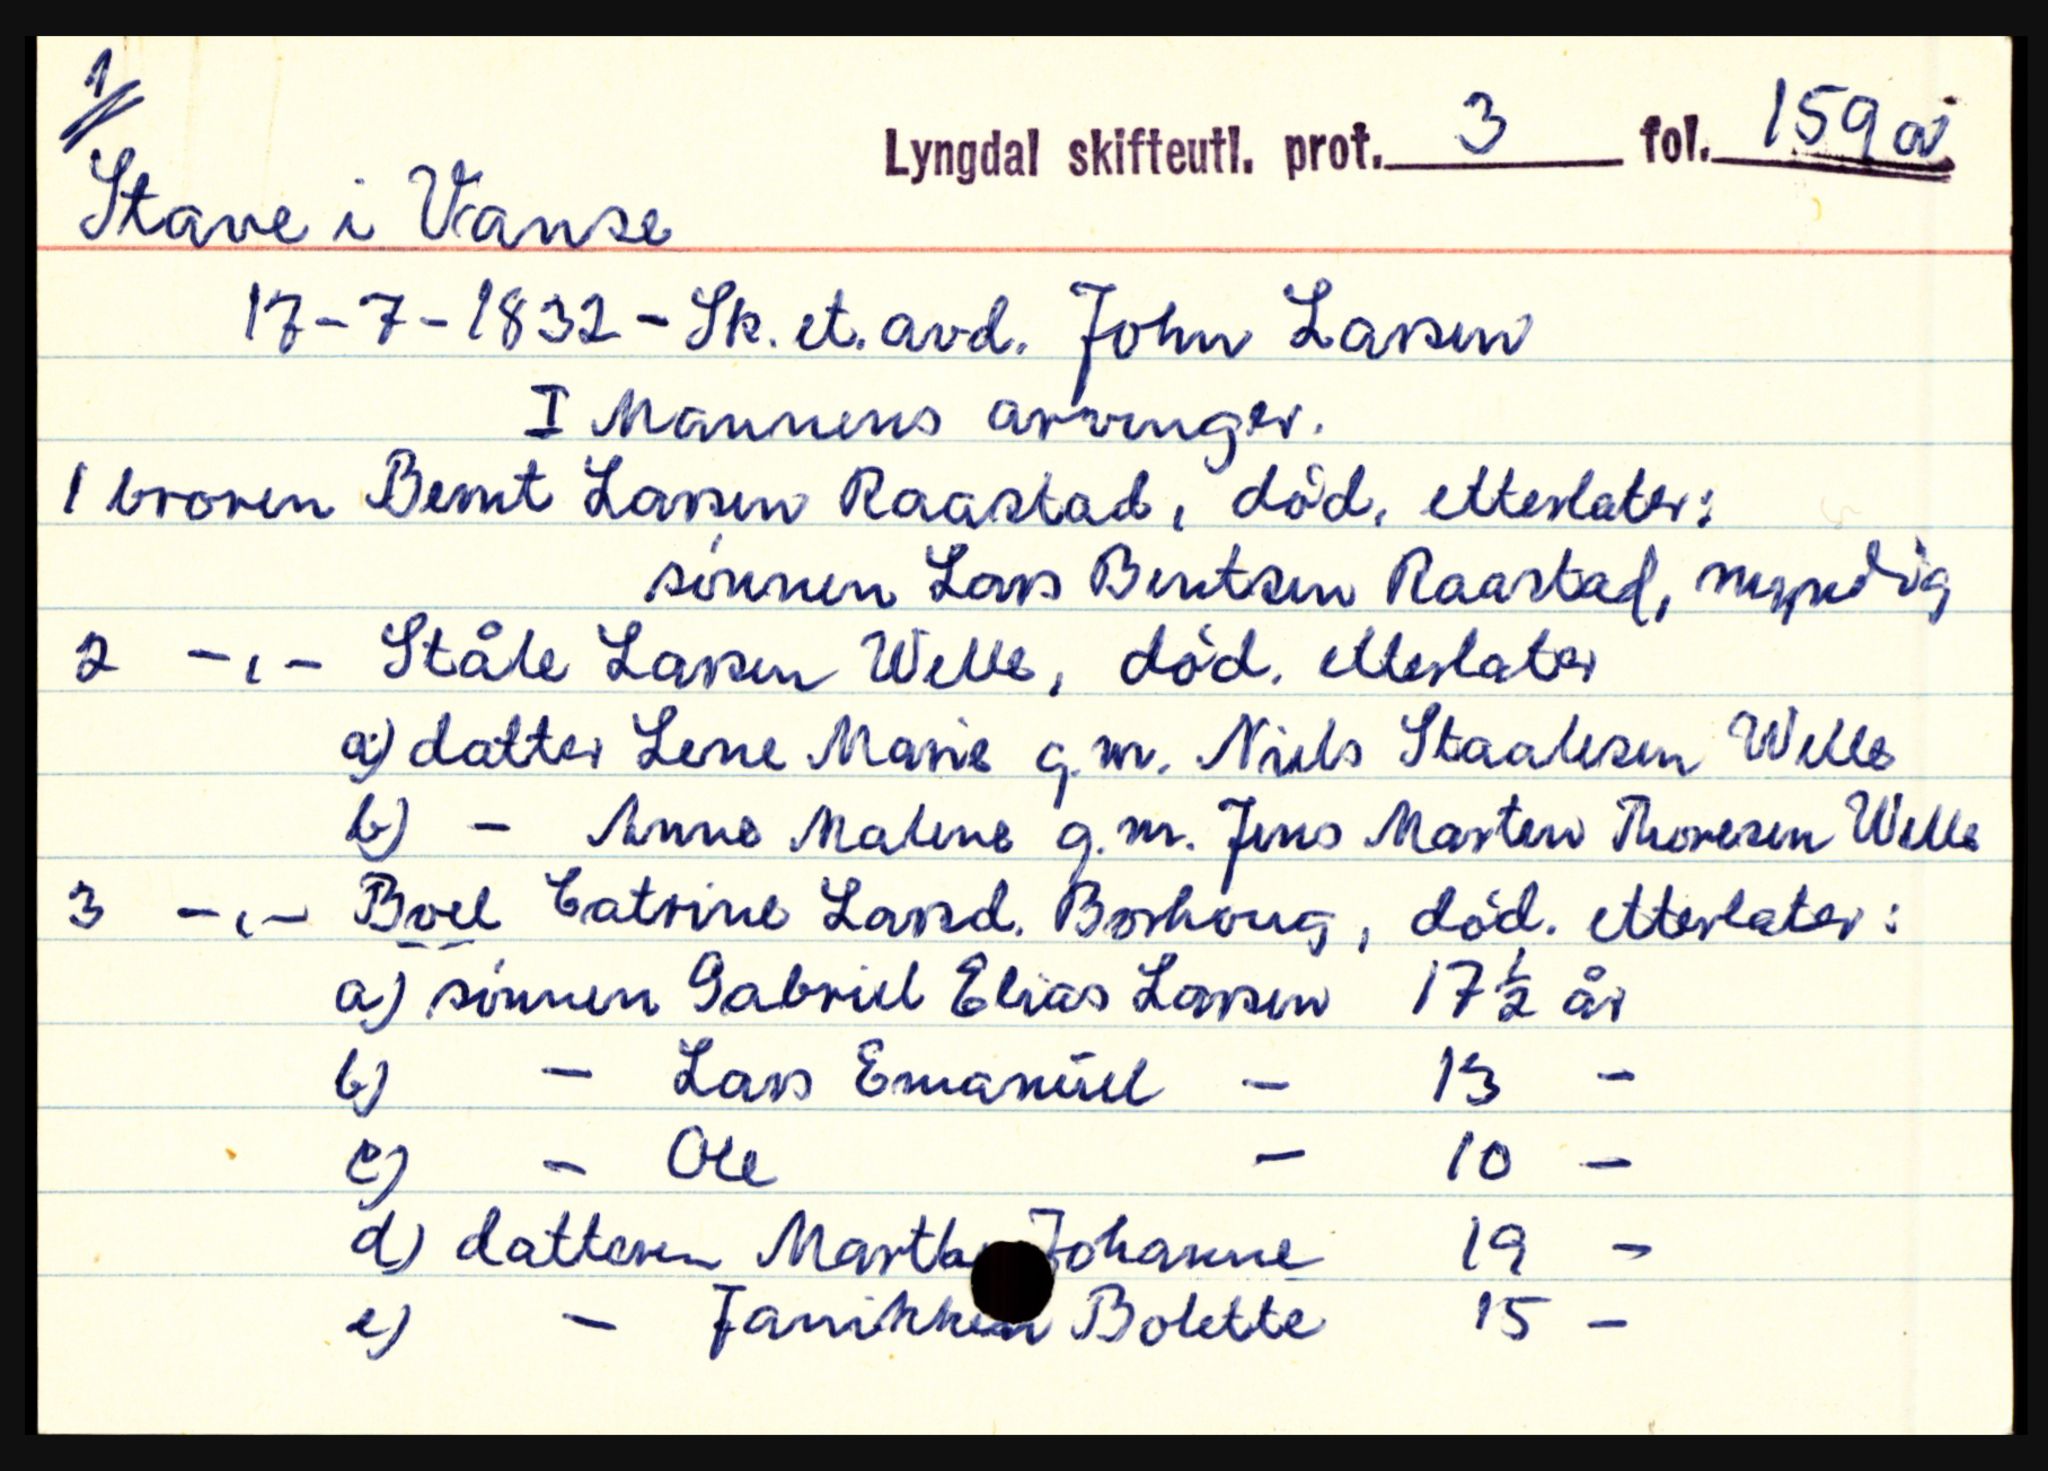 1/
Lyngdal skifteutl. prot. 3 fol. 159 a
Stave i Vanse
17-7-1832 - Sk. et. avd. John Larsen
I Mannens arvinger.
1 broren Bernt Larsen Raastad, død, etterlater:
sønnen Lars Berntsen Raastad, myndig
2 -,- Ståle Larsen Welle, død. etterlater
a) datter Lene Marie g.m. Niels Staalesen Welle
b) - Anne Malene g.m. Jens Marten Thoresen Welle
3 -,- Boel Catrine Larsd. Borhoug, død. etterlater:
a) sønnen Gabriel Elias Larsen 17½ år
b) - Lars Emanüel - 13 -
c) - Ole - 10 -
d) datteren Marthe Johanne 19 -
e) - Janikken Bolette 15 -